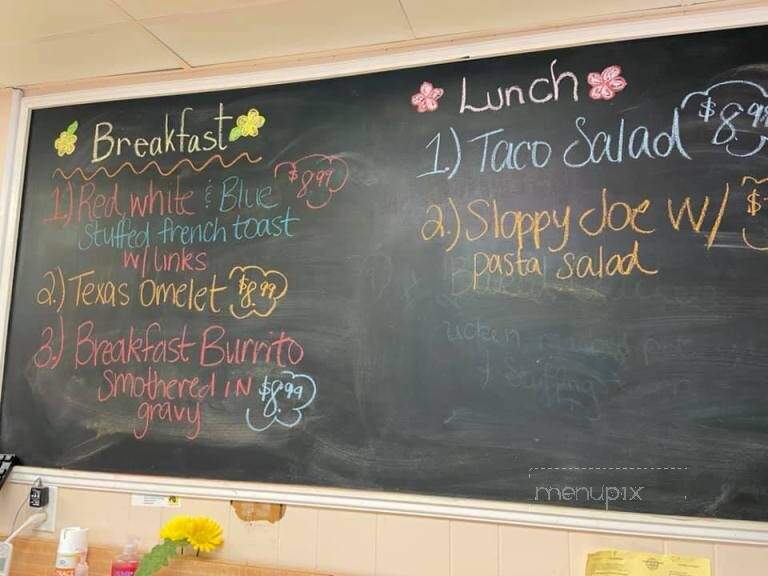 Breakfast
1.) Red, white & Blue $8.99
Stuffed french toast
w/ links
2.) Texas Omelet $8.99
3.) Breakfast Burrito
Smothered IN $8.99
gravy
Lunch
1.) Taco Salad $8.99
2.) Sloppy Joe w/ $
pasta salad
menupix